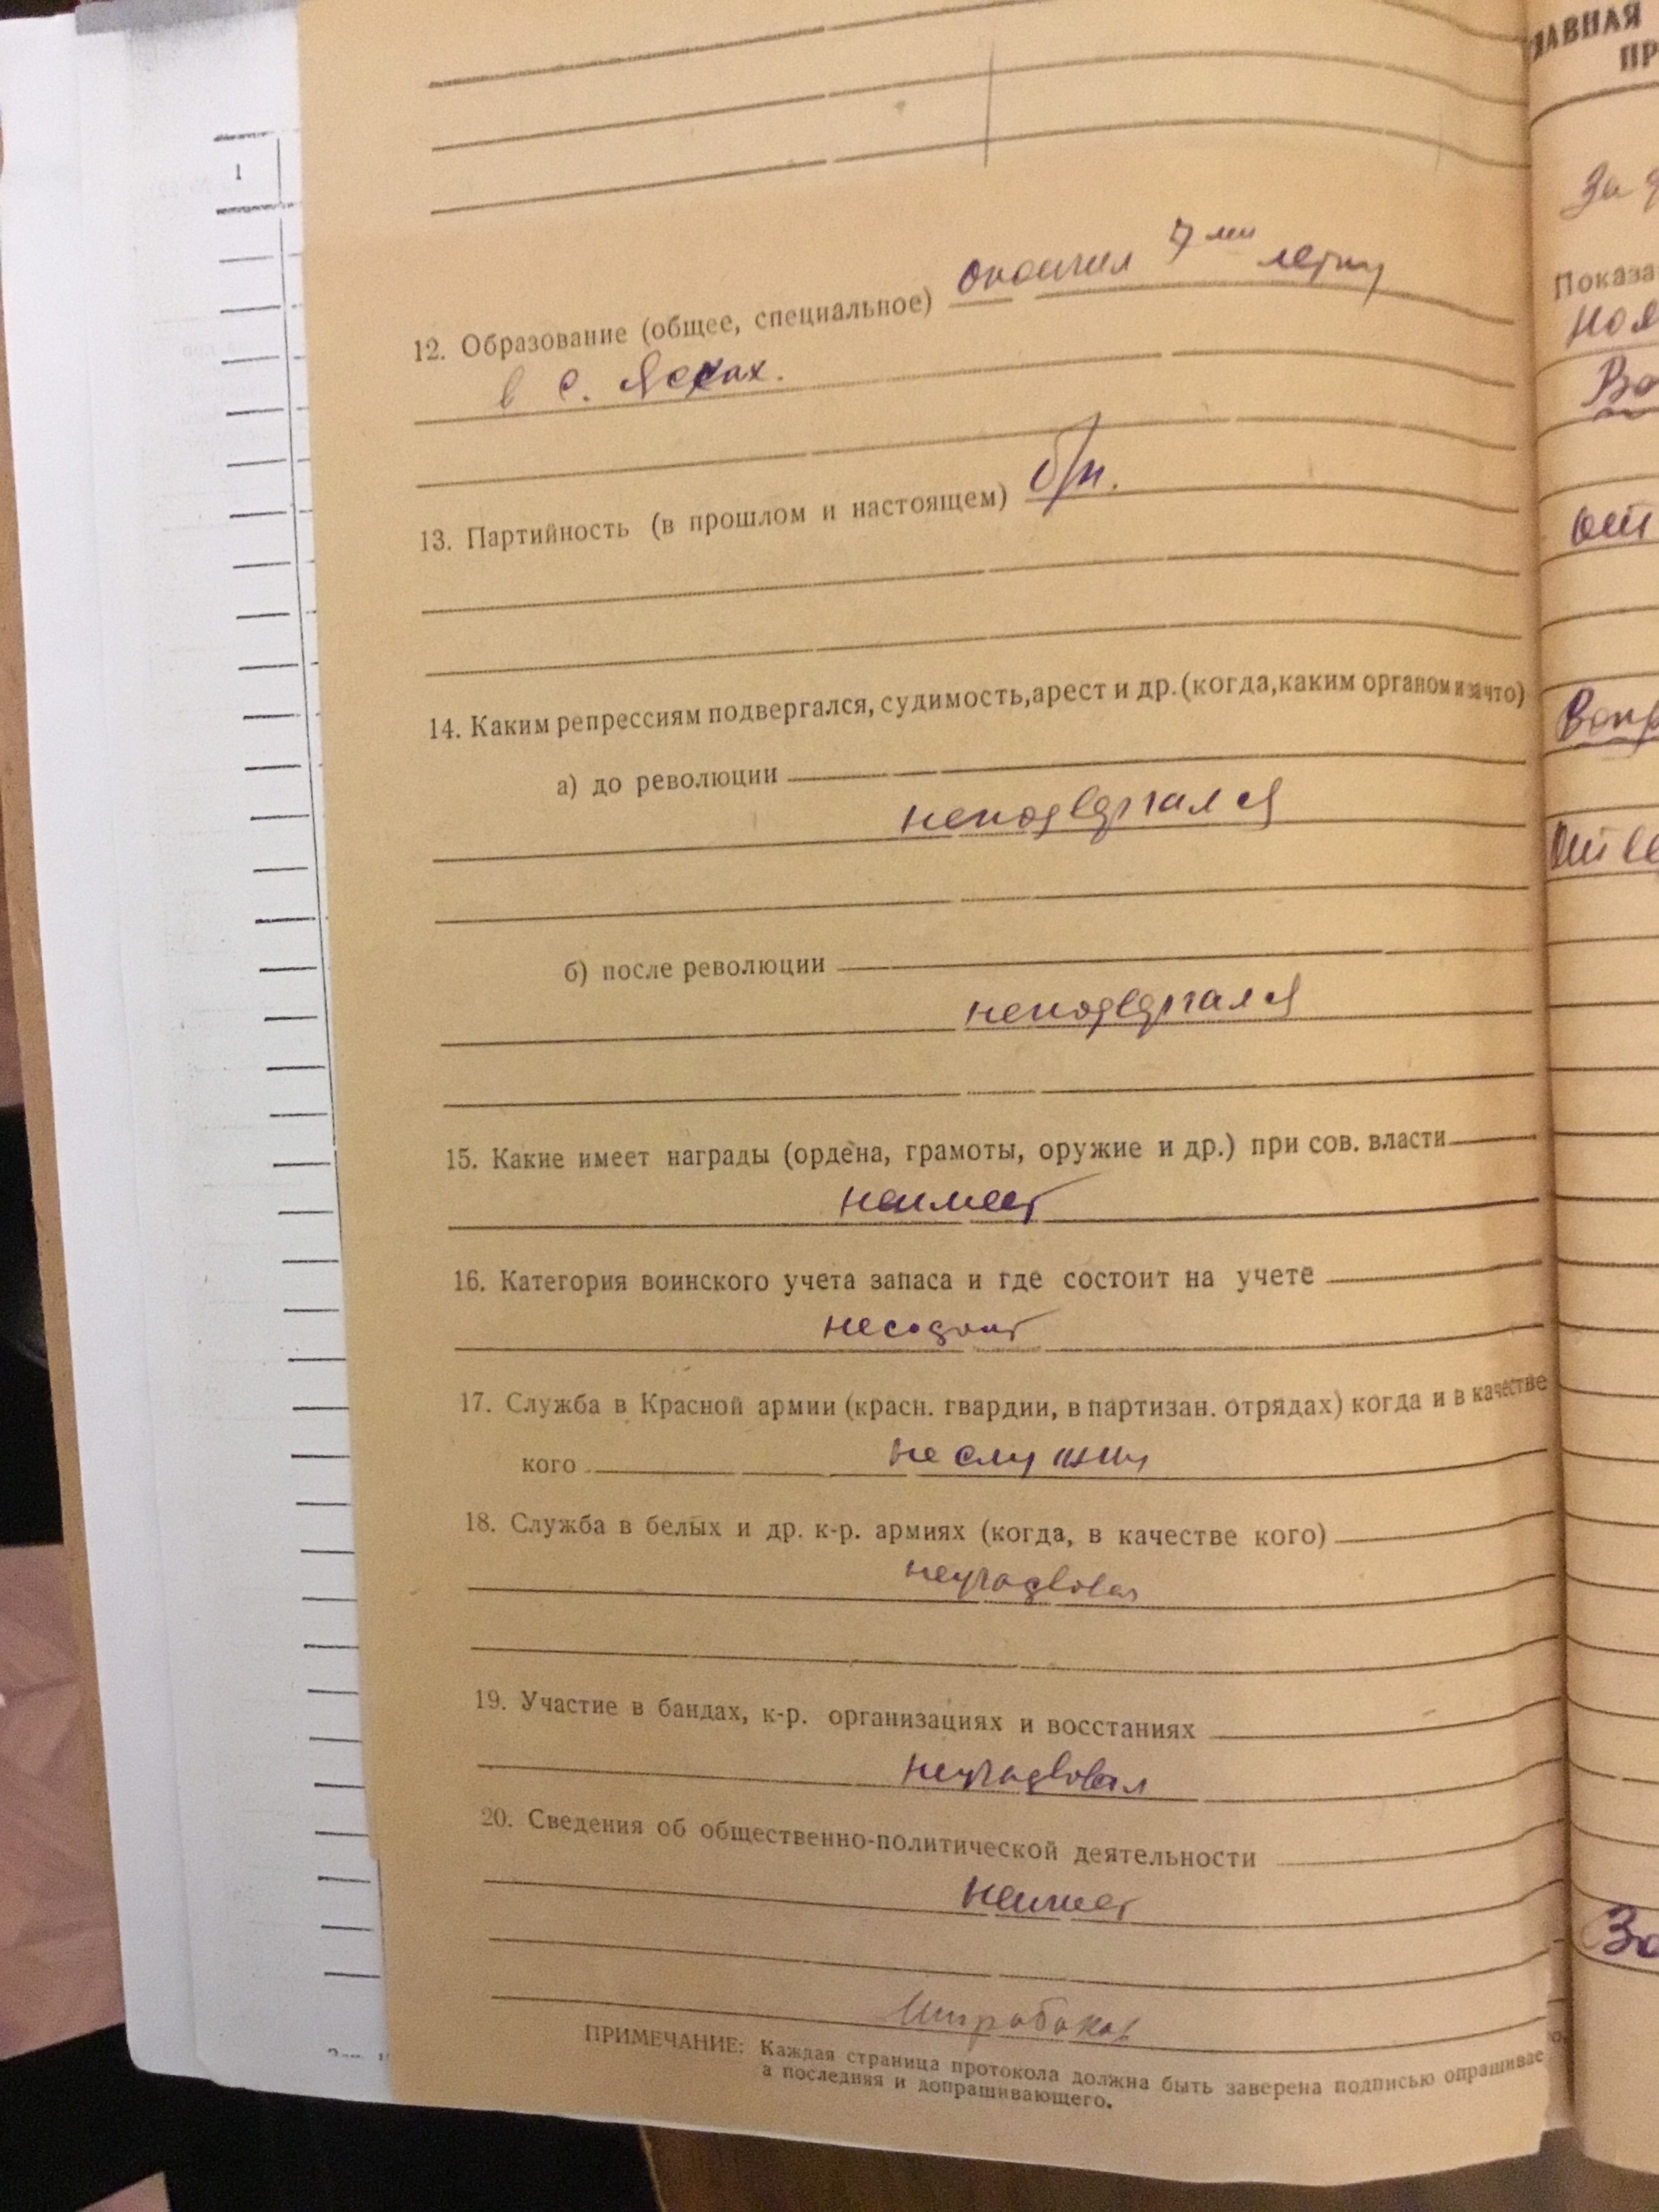 1
12. Образование (общее, специальное) окончил 7ми летку
в с. Ясках.
13. Партийность (в прошлом и настоящем) б/п.
14. Каким репрессиям подвергался, судимость, арест и др. (когда, каким органом и за что)
а) до революции
неподвергался
б) после революции
неподвергался
15. Какие имеет награды (ордена, грамоты, оружие и др.) при сов. власти
неимеет
16. Категория воинского учета запаса и где состоит на учете
несостоит
17. Служба в Красной армии (красн. гвардии, в партизан. отрядах) когда и в качестве
кого
18. Служба в белых и др. к-р. армиях (когда, в качестве кого)
неучаствовал
19. Участие в бандах, к-р. организациях и восстаниях
неучаствовал
20. Сведения об общественно-политической деятельности
неимеет
ПРИМЕЧАНИЕ: Каждая страница протокола должна быть заверена подписью опрашивае
а последняя и допрашивающего.
ЛАВНАЯ
ПР
За
Показа
Ноя
Во
От
Вопр
Отве